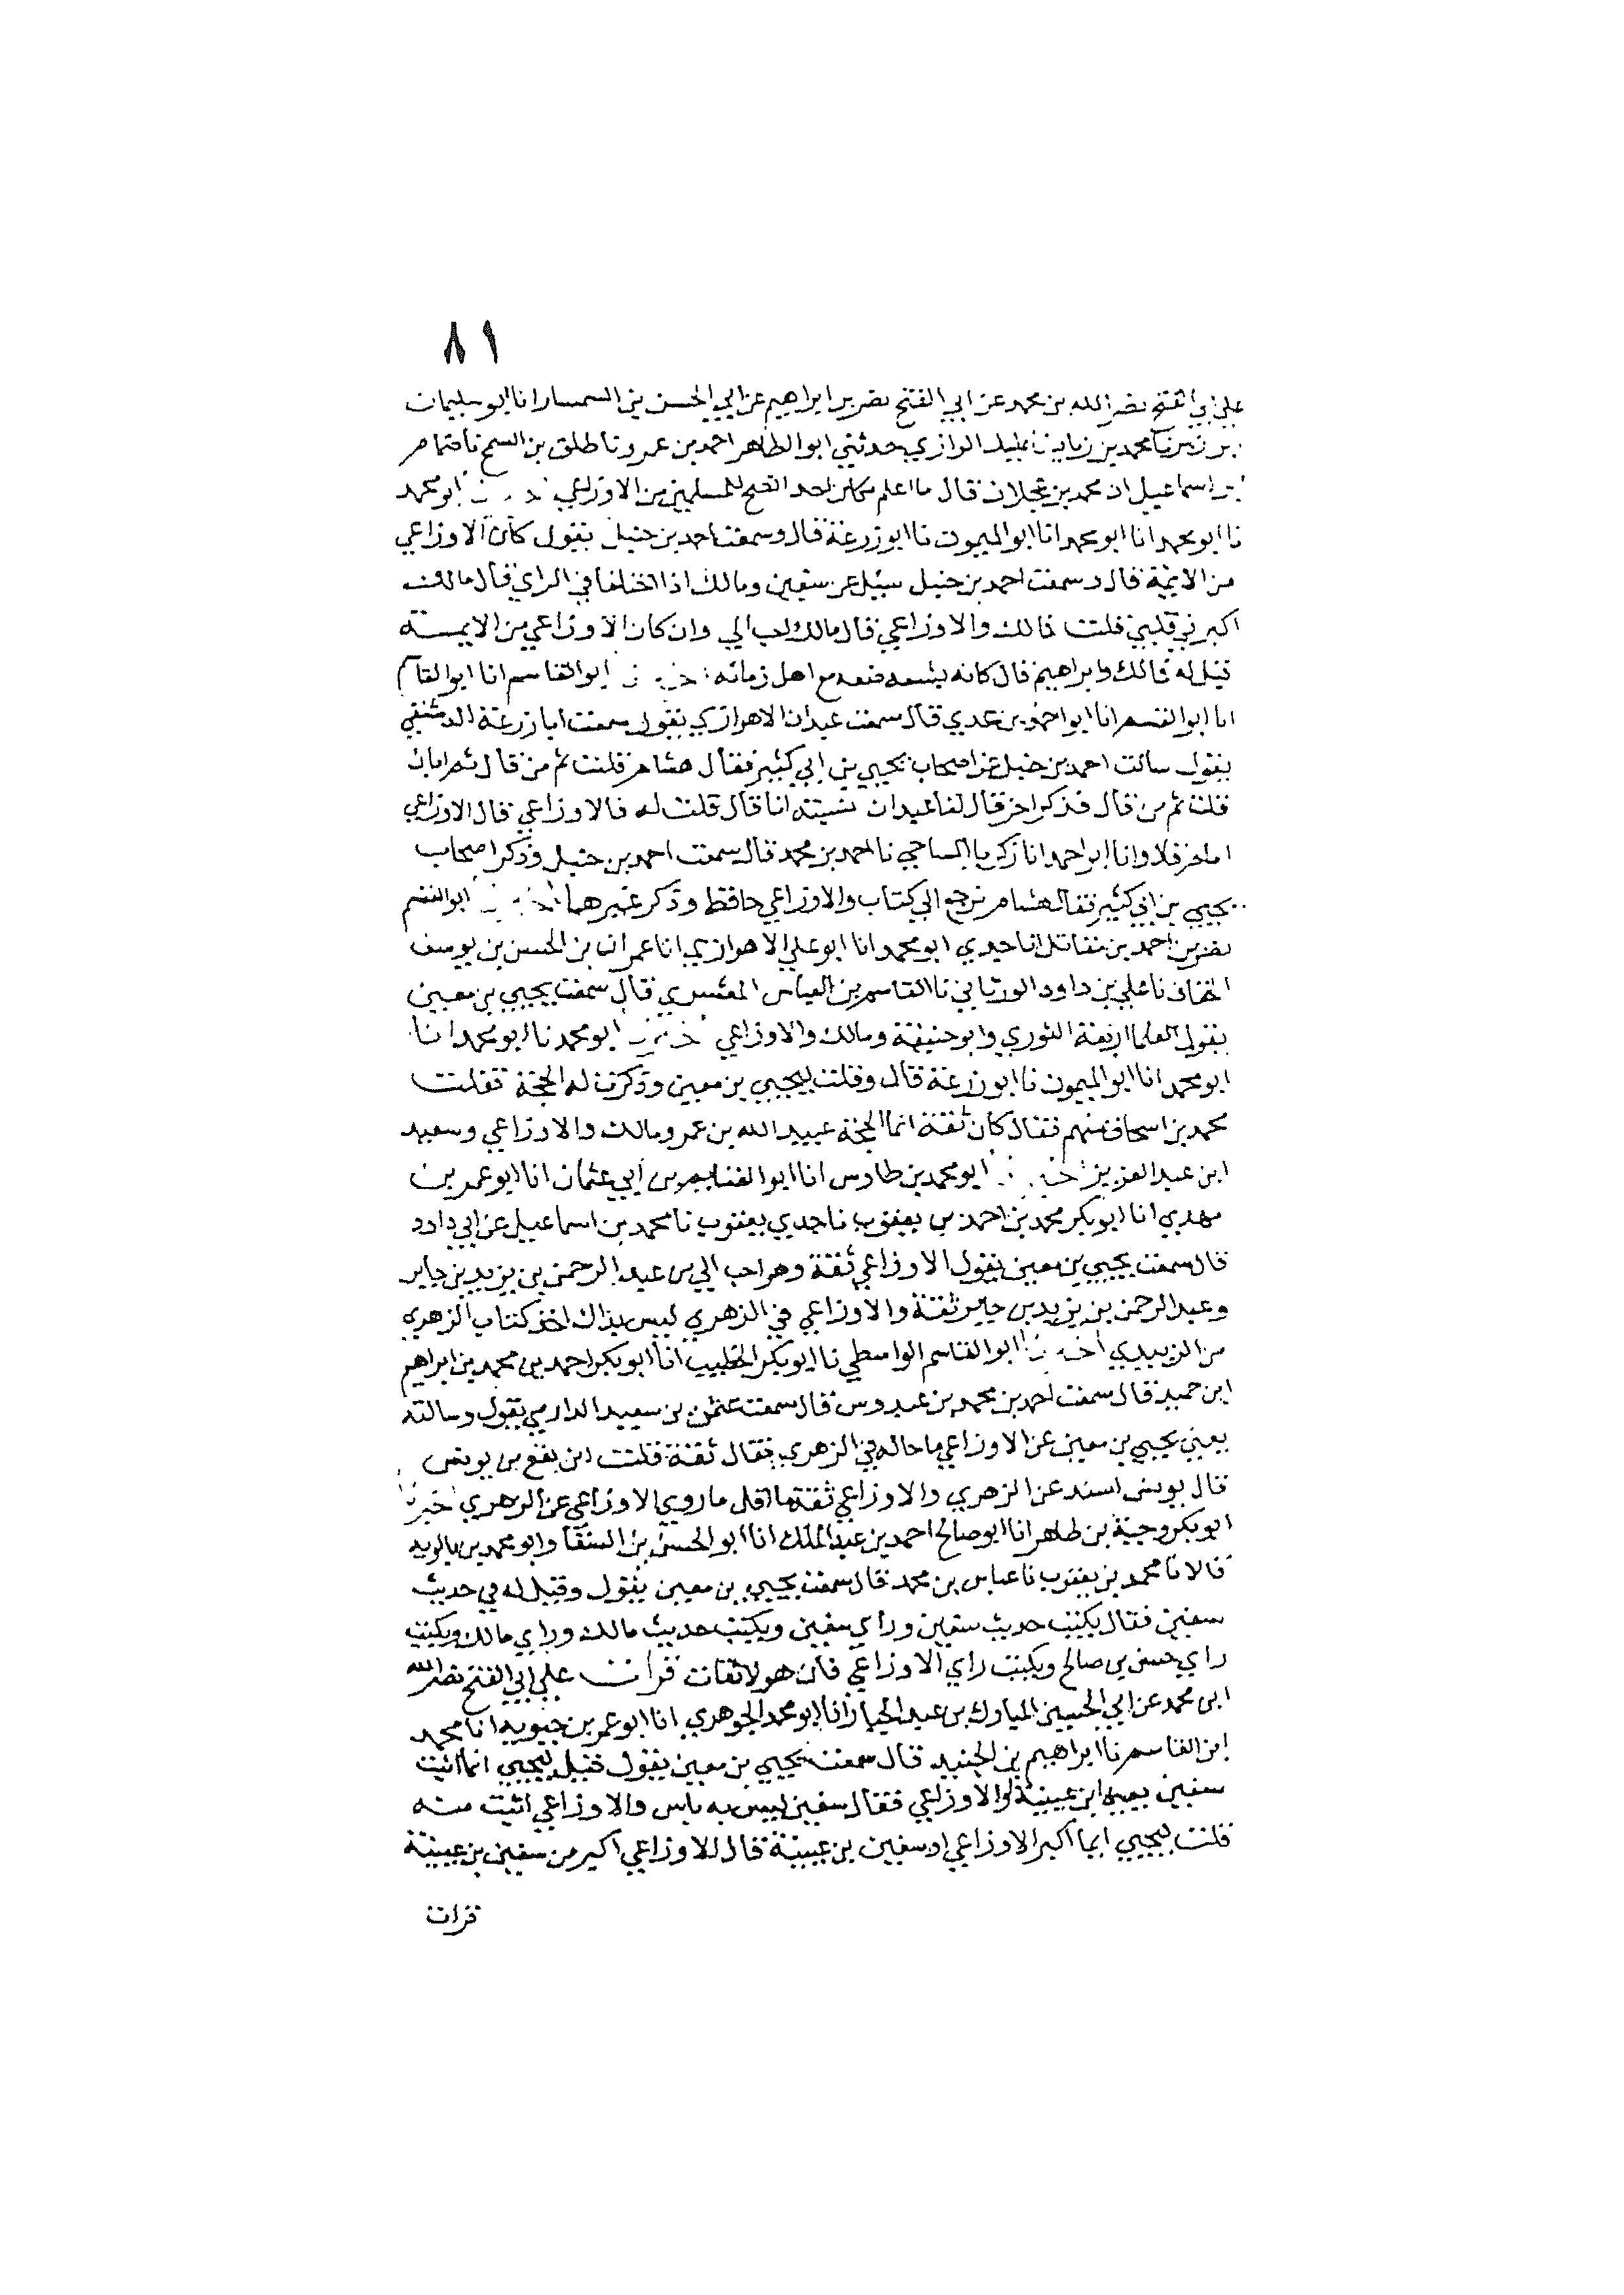 ٨١
علي ابي الفتح نصر الله بن محمد عن ابي الفتح نصر بن ابراهيم عن ابي الحسن بن السمسار انا ابو سليمان
بن زبر نا محمد بن الرازي حدثني ابو الطاهر احمد بن عمرو نا طلق بن السمح نا ضمام
بن اسماعيل ان محمد بن عجلان قال ما اعلم مكان احد انصح للمسلمين من الاوزاعي ابو محمد
نا ابو محمد انا ابو محمد انا ابو الميمون نا ابو زرعة قال وسمعت احمد بن حنبل يقول كان الاوزاعي
من الائمة قال وسمعت احمد بن حنبل سئل عن سفين ومالك اذا اختلفا في الراي قال مالك
اكبر في قلبي قلت فمالك والاوزاعي قال مالك احب الي وان كان الاوزاعي من الايمة
قيل له فمالك وابراهيم قال كانه ضعه مع اهل زمانه ابو القاسم انا ابو القاسم
انا ابو القسم انا ابو احمد بن عدي قال سمعت عبدان الاهوازي يقول سمعت ابا زرعة الدمشقي
يقول سالت احمد بن حنبل عن اصحاب يحيي بن ابي كثير فقال هشام قلت ثم من قال ثم ابان
قلت ثم من قال فذكر اخر قال لنا عبدان نسيته انا قال قلت له فالاوزاعي قال الاوزاعي
امام وانا ابو احمد انا زكريا الساجي نا احمد بن محمد قال سمعت احمد بن حنبل وذكر اصحاب
يحيي بن ابي كثير فقال هشام نرجع الي كتاب والاوزاعي حافظ وذكر غيرهما ابو القسم
نصر بن احمد بن مقاتل انا جدي ابو محمد انا ابو علي الاهوازي انا عمران بن الحسن بن يوسف
الخفاف نا علي بن داود الورثاني نا القاسم بن العباس المعشري قال سمعت يحيي بن معين
يقول العلما اربعة الثوري وابو حنيفة ومالك والاوزاعي ابو محمد نا ابو محمد انا
ابو محمد انا ابو الميمون نا ابو زرعة قال وقلت ليحيي بن معين وذكرت له الحجة فقلت
محمد بن اسحاق منهم فقال كان ثقة انما الحجة عبيد الله بن عمر ومالك والاوزاعي وسعيد
ابن عبد العزيز ابو محمد بن طاوس انا ابو الغنايم بن ابي عثمان انا ابو عمر بن
مهدي انا ابو بكر محمد بن احمد بن يعقوب نا جدي يعقوب نا محمد بن اسماعيل عن ابي داود
قال سمعت يحيي بن معين يقول الاوزاعي ثقة وهو احب الي من عبد الرحمن بن يزيد بن جابر
وعبد الرحمن بن يزيد بن جابر ثقة والاوزاعي في الزهري ليس بذاك اخذ كتاب الزهري
من الزبيدي ابو القاسم الواسطي نا ابو بكر الخطيب انا ابو بكر احمد بن محمد بن ابراهيم
ابن حميد قال سمعت احمد بن محمد بن عبدوس قال سمعت عثمن بن سعيد الدارمي يقول وسالته
يعني يحيي بن معين عن الاوزاعي ما حاله في الزهري فقال ثقة قلت اين يقع من يونس
قال يونس اسند عن الزهري والاوزاعي ثقة ما اقل ما روي الاوزاعي عن الزهري اخبرنا
ابو بكر وجيه بن طاهر انا ابو صالح احمد بن عبد الملك انا ابو الحسن بن السقا وابو محمد بن بالويه
قالا نا محمد بن يعقوب نا عباس بن محمد قال سمعت يحيي بن معين يقول وقيل له في حديث
سفين فقال يكتب حديث سفين وراي سفين ويكتب حديث مالك وراي مالك ويكتب
راي حسن بن صالح ويكتب راي الاوزاعي فان هولا ثقات قرات علي ابي الفتح نصر الله
ابن محمد عن ابي الحسين المبارك بن عبد الجبار انا ابو محمد الجوهري انا ابو عمر بن حيويه انا محمد
ابن القاسم نا ابراهيم بن الجنيد قال سمعت يحيي بن معين يقول فقيل ليحيي ايما اثبت
سفين يعني ابن عيينة او الاوزاعي فقال سفين ليس به باس والاوزاعي اثبت منه
قلت ليحيي ايما اكبر الاوزاعي او سفين بن عيينة قال الاوزاعي اكبر من سفين بن عيينة
قرات